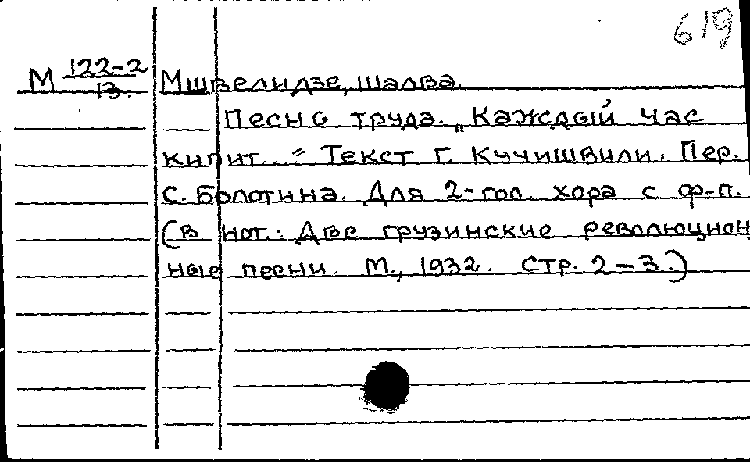 619
М 122-2/13. Мшвелидзе, Шалва.
Песнь труда. „Каждый час
кипит..." Текст Г. Кучишвили. Пер.
С. Болотина. Для 2-гол. хора с ф-п.
(в нот.: Две грузинские революцион
ные песни. М., 1932. Стр. 2-3.)